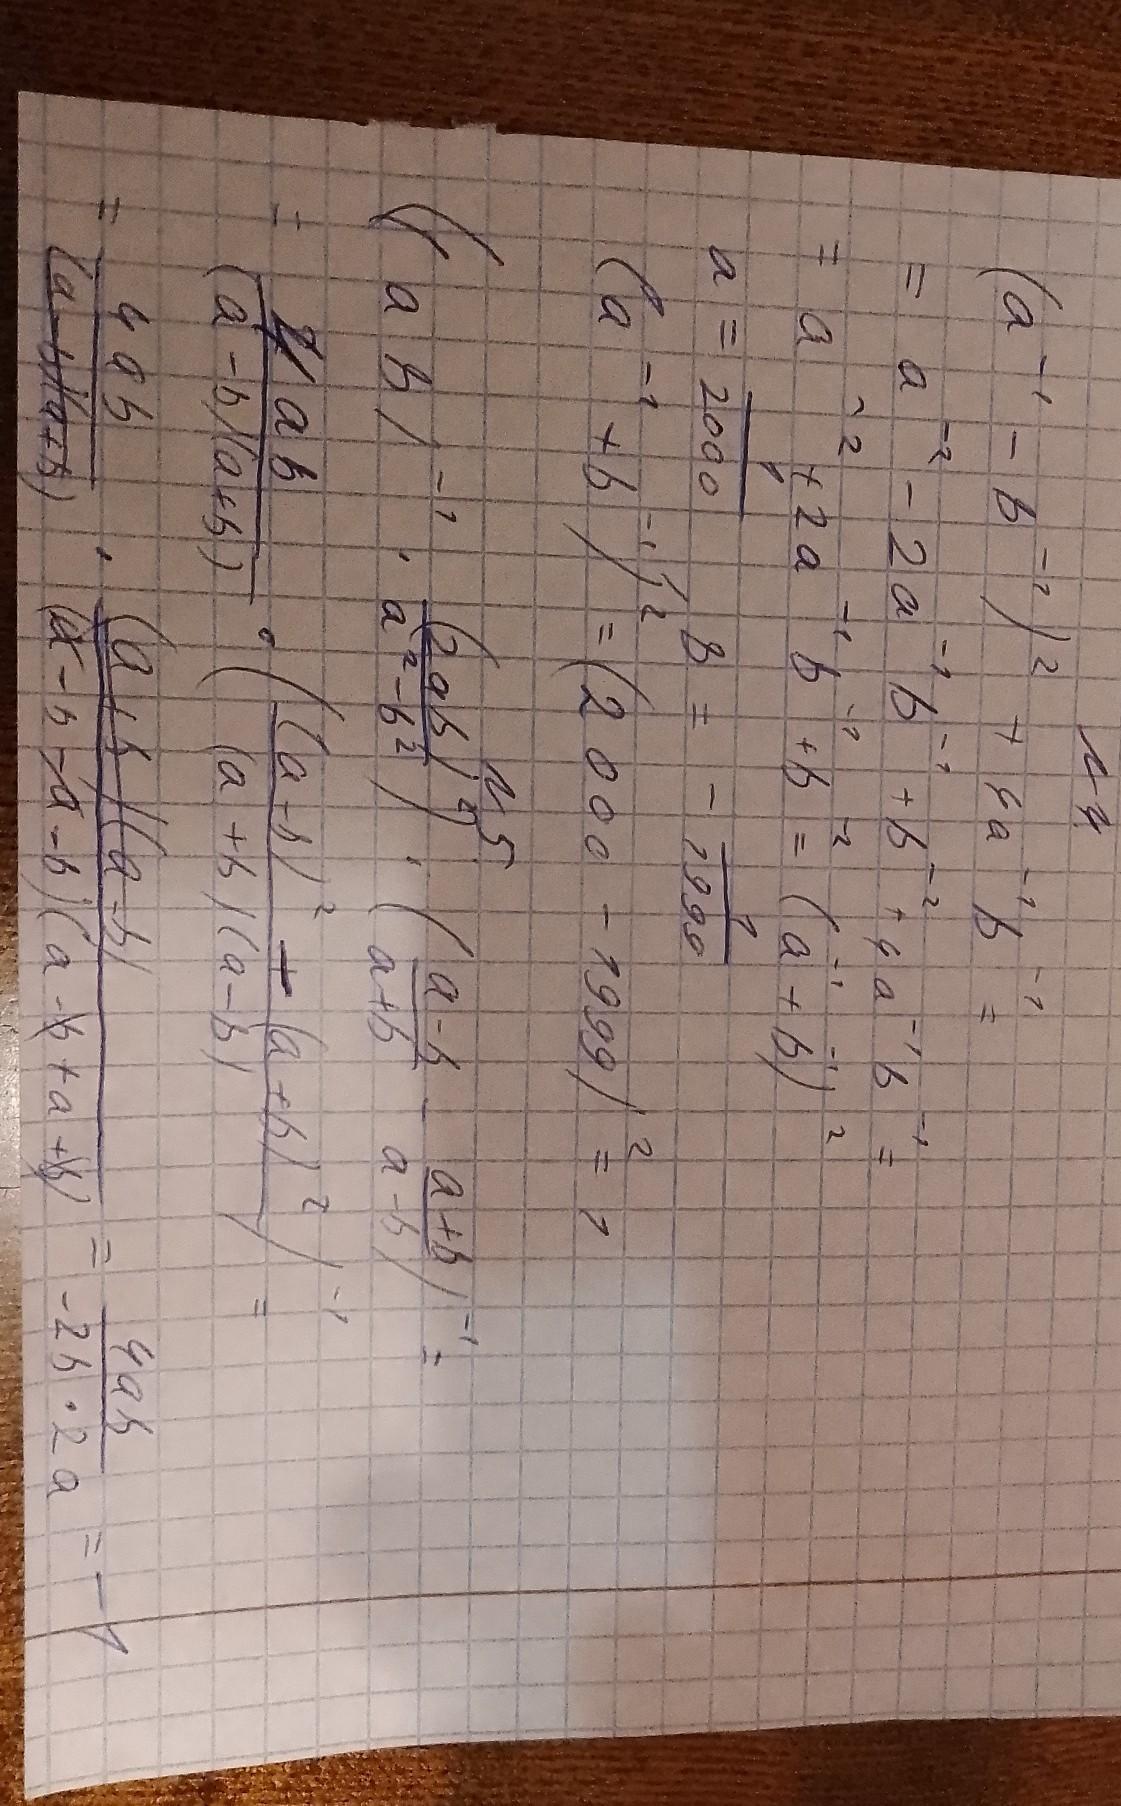 №4
(a⁻¹ - b⁻¹)² + 4a⁻¹b⁻¹ =
= a⁻² - 2a⁻¹b⁻¹ + b⁻² + 4a⁻¹b⁻¹ =
= a⁻² + 2a⁻¹b⁻¹ + b⁻² = (a⁻¹ + b⁻¹)²
a = 1/2000 b = - 1/1999
(a⁻¹ + b⁻¹)² = (2000 - 1999)² = 1
№5
(ab)⁻¹ · (2ab/(a² - b²))² · ((a-b)/(a+b) - (a+b)/(a-b))⁻¹ =
= 4ab/((a-b)(a+b)) · (((a-b)² - (a+b)²)/((a+b)(a-b)))⁻¹ =
= 4ab/((a-b)(a+b)) · (a+b)(a-b)/((a-b-a-b)(a-b+a+b)) = 4ab/(-2b·2a) = -1